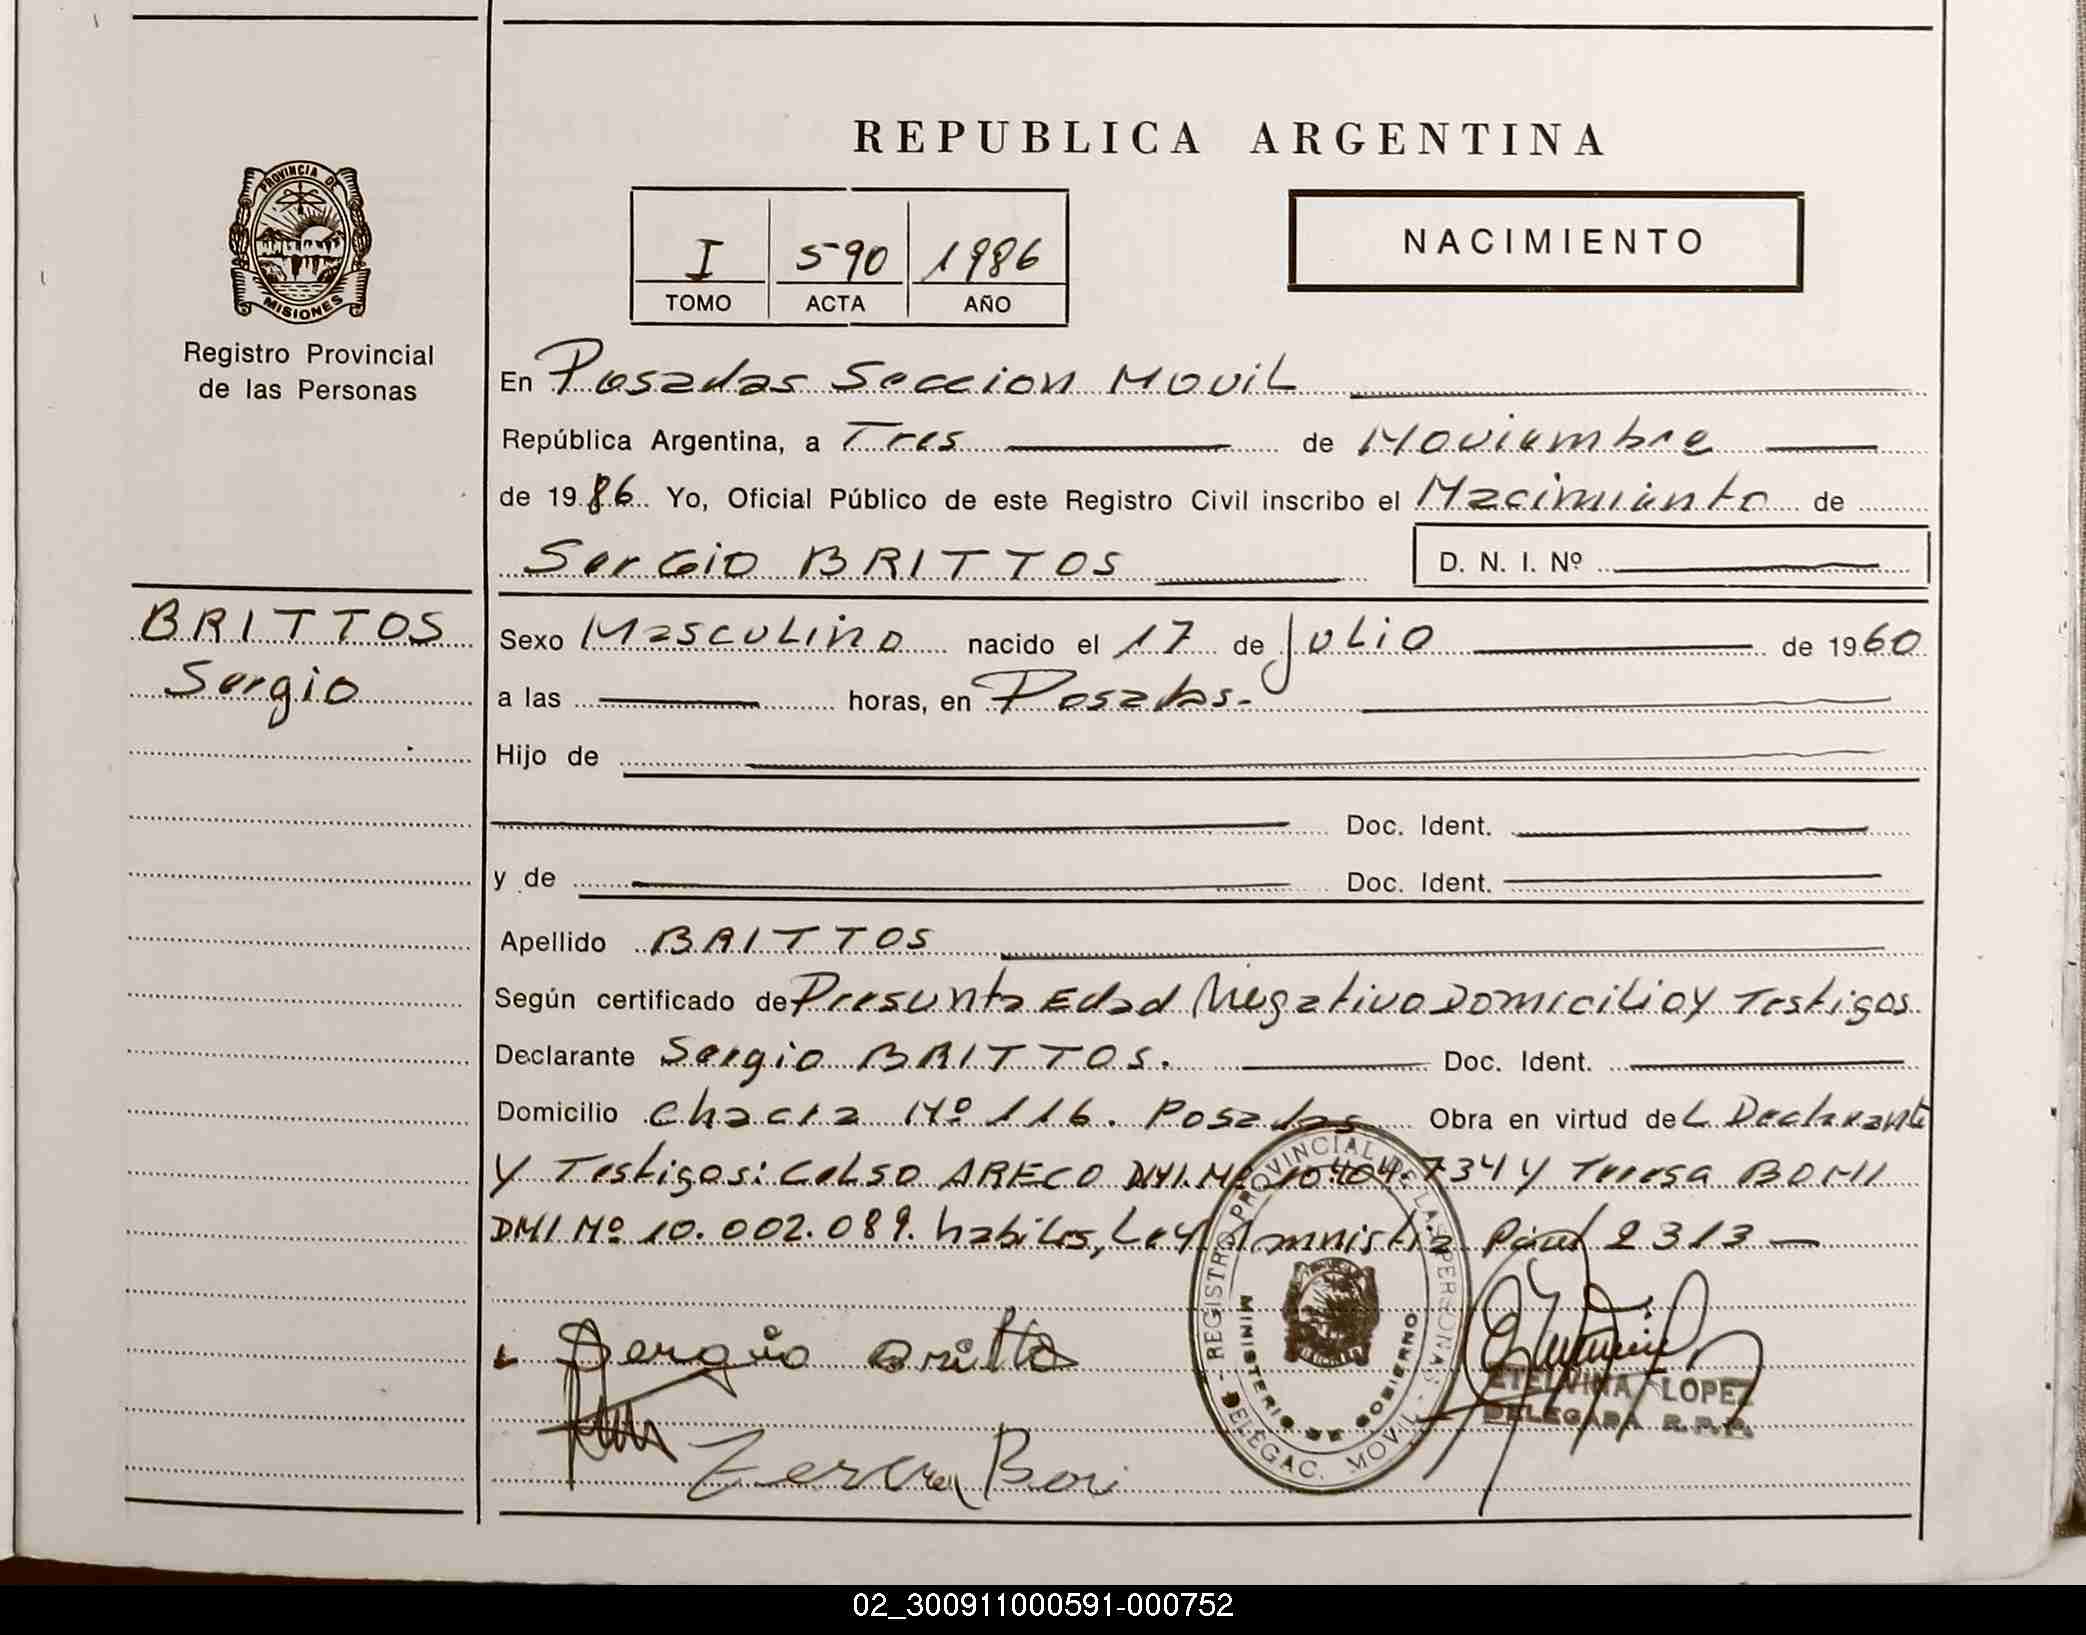 REPUBLICA ARGENTINA
PROVINCIA DE
MISIONES
Registro Provincial
de las Personas
I 590 1986
TOMO ACTA AÑO
NACIMIENTO
En Posadas Seccion Movil
República Argentina, a Tres de Noviembre
de 1986 Yo, Oficial Público de este Registro Civil inscribo el Nacimiento de
Sergio BRITTOS D. N. I. Nº
BRITTOS
Sergio
Sexo Masculino nacido el 17 de Julio de 1960
a las horas, en Posadas.-
Hijo de
Doc. Ident.
y de Doc. Ident.
Apellido BRITTOS
Según certificado de Presunta Edad Negativo Domicilio y Testigos
Declarante Sergio BRITTOS. Doc. Ident.
Domicilio Chacra Nº 116. Posadas Obra en virtud del Declarante
y Testigos: Celso ARECO DNI. Nº 10.404.734 y Teresa BONI
DNI Nº 10.002.089. habiles, Ley Amnistia 2313 —
Sergio Britto
Teresa Boni
REGISTRO PROVINCIAL DE LAS PERSONAS
MINISTERIO DE GOBIERNO
DELEGAC. MOVIL
ETELVINA LOPEZ
DELEGADA R.P.P.
02_300911000591-000752